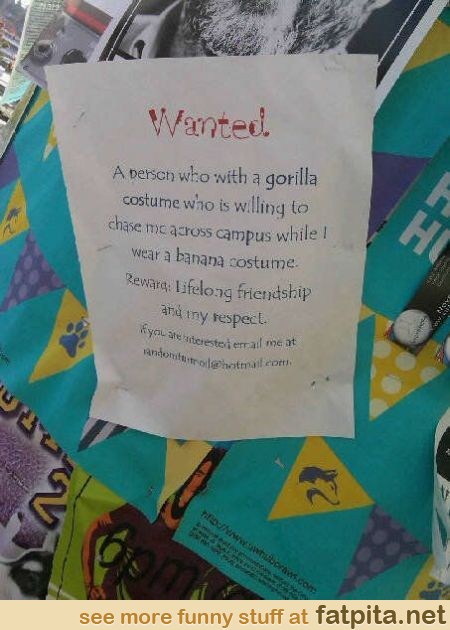 Wanted.
A person who with a gorilla
costume who is willing to
chase me across campus while I
wear a banana costume.
Reward: Lifelong friendship
and my respect.
If you are interested email me at
@hotmail.com.
6pm
see more funny stuff at fatpita.net